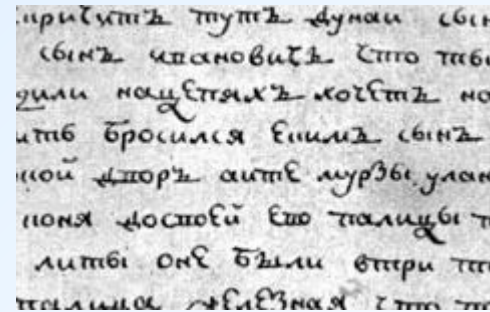 кричитъ тутъ дунаи сын
сынъ ивановичъ что ты
дили нацепяхъ хочетъ на
ить бросился екимъ сынъ
ской дворъ аите мурзы улан
коня доспоей ево палицы
литы оне были втри
палица железная что по